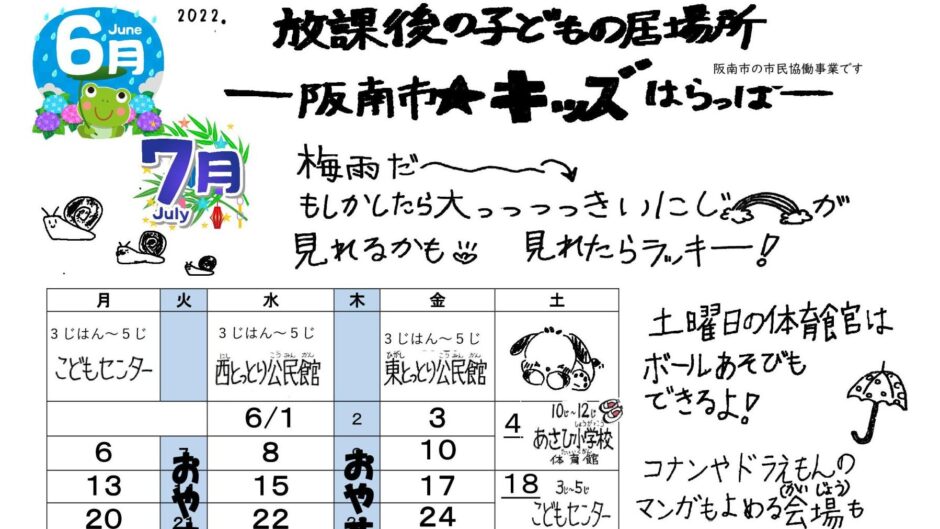 2022.
6月
June
7月
July
放課後の子どもの居場所
阪南市の市民協働事業です
ー阪南市★キッズはらっぱー
梅雨だ
もしかしたら大っっっっきいにじが
見れるかも 見れたらラッキー!
月 火 水 木 金 土
3じはん~5じ 3じはん~5じ 3じはん~5じ
こどもセンター 西とっとり公民館 東とっとり公民館
にし こうみんかん ひがし こうみんかん
6/1 2 3 4 10じ~12じ
あさひ小学校
しょうがっこう
体育館
たいいくかん
6 7 8 10
13 15 17 18 3じ~5じ
こどもセンター
20 22 24
おや
おや
土曜日の体育館は
ボールあそびも
できるよ!
コナンやドラえもんの
マンガもよめる会場も
(かいじょう)